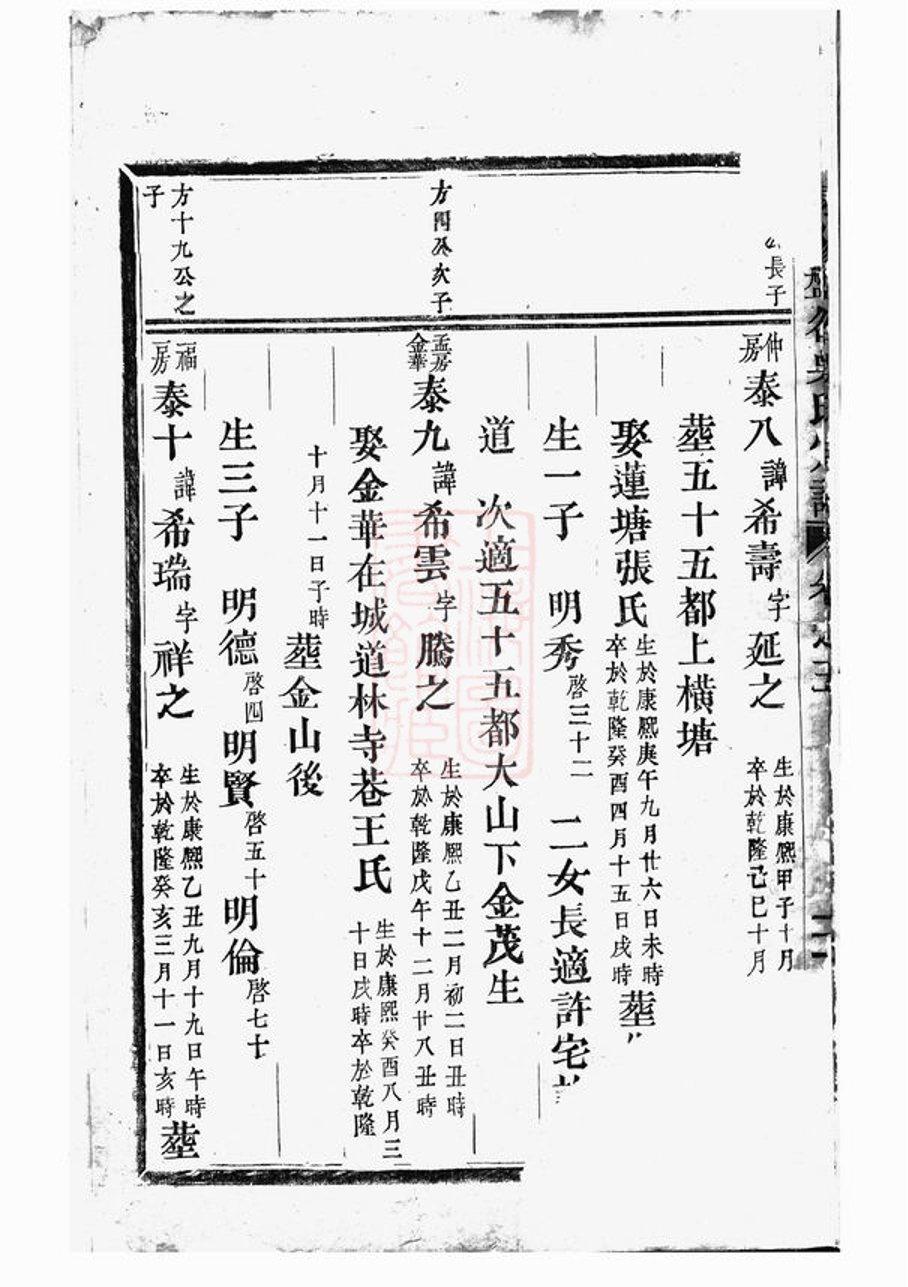 長子
仲房泰八諱希壽字延之 生於康熙甲子十月
卒於乾隆己巳十月
葬五十五都上橫塘
娶蓮塘張氏 生於康熙庚午九月廿六日未時
卒於乾隆癸酉四月十五日戌時 葬
生一子 明秀啓三十二 二女長適許宅
道 次適五十五都大山下金茂生
方四公次子
孟房金華泰九諱希雲字騰之 生於康熙乙丑二月初二日丑時
卒於乾隆戊午十二月廿八丑時
娶金華在城道林寺巷王氏 生於康熙癸酉八月三
十日戌時卒於乾隆
十月十一日子時 葬金山後
生三子 明德啓四 明賢啓五十 明倫啓七十
方十九公之
子
福二房泰十諱希瑞字祥之 生於康熙乙丑九月十九日午時
卒於乾隆癸亥三月十一日亥時 葬